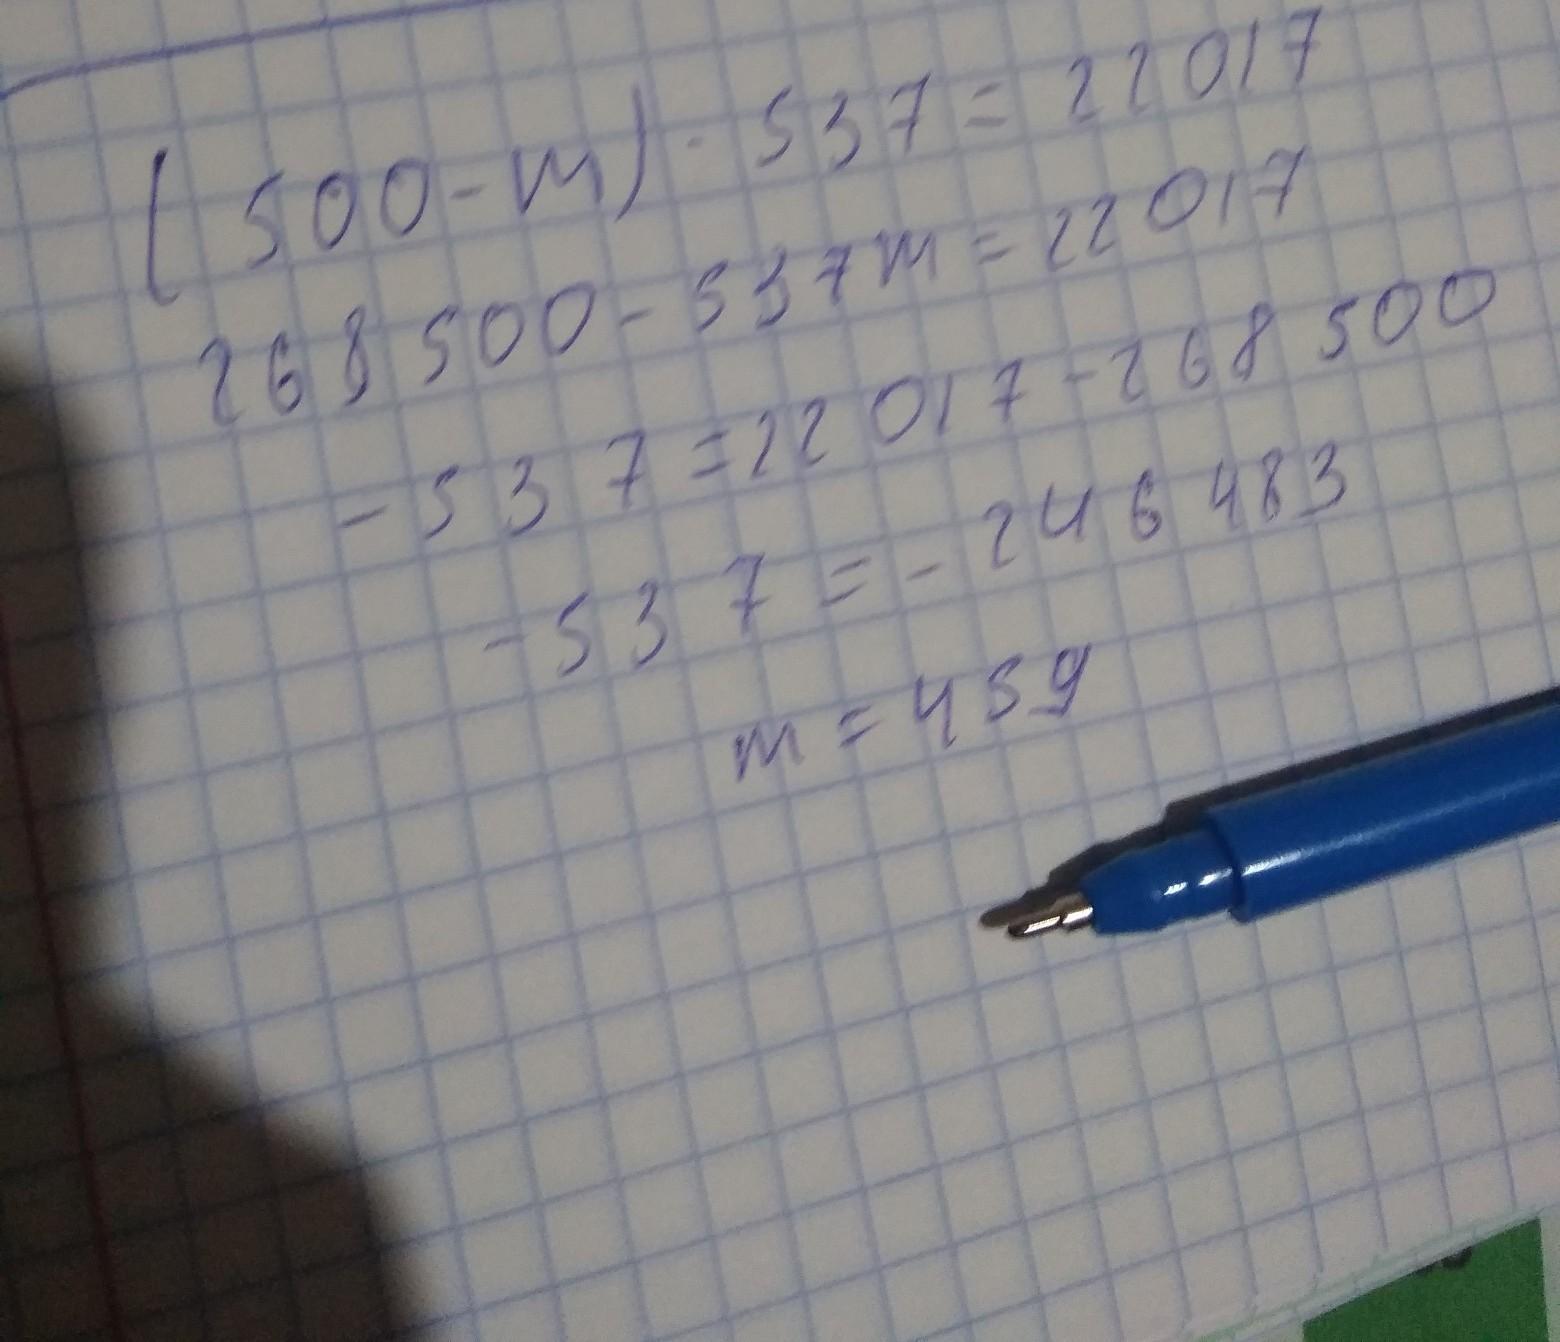 (500-m)·537=22017
268500-537m=22017
-537=22017-268500
-537=-246483
m=459